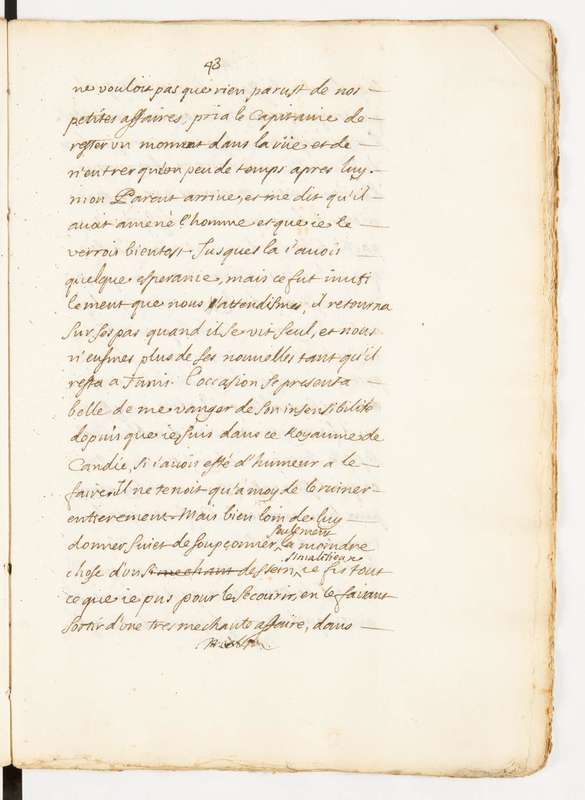 43
ne vouloit pas que rien parust de nos
petites affaires, pria le Capitaine de
rester un moment dans la rüe et de
n'entrer qu'un peu de temps apres luy.
mon Parent arrive, et me dit qu'il
avoit amené l'homme et que ie le
verrois bientost. Jusques la i'avois
quelque esperance, mais ce fut inuti
lement que nous l'attendismes, il retourna
sur ses pas quand il se vit seul, et nous
n'eusmes plus de ses nouvelles tant qu'il
resta a Tunis. L'occasion se presenta
belle de me vanger de son insensibilité
depuis que ie suis dans ce Royaume de
Candie, si i'avois esté d'humeur a le
faire. Il ne tenoit qu'a moy de le ruiner
entierement. Mais bien loin de luy
seulement
donner suiet de soupçonner la moindre
si malitieux
chose d'un si mechant dessein, ie fis tout
ce que ie pus pour le secourir, en le faisant
sortir d'une tres mechante affaire, dans